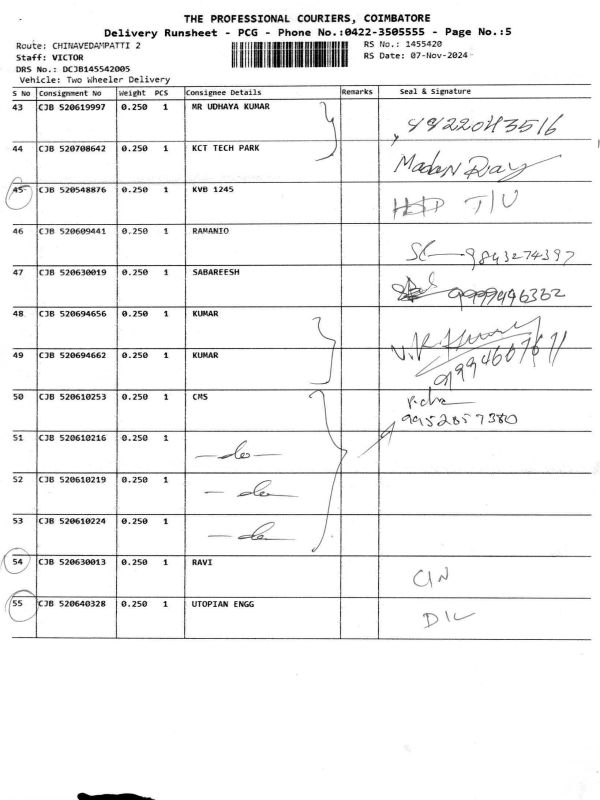 THE PROFESSIONAL COURIERS, COIMBATORE
Delivery Runsheet - PCG - Phone No.:0422-3505555 - Page No.:5
Route: CHINAVEDAMPATTI 2 RS No.: 1455420
Staff: VICTOR RS Date: 07-Nov-2024
DRS No.: DCJB145542005
Vehicle: Two Wheeler Delivery
S No Consignment No Weight PCS Consignee Details Remarks Seal & Signature
43 CJB 520619997 0.250 1 MR UDHAYA KUMAR
44 CJB 520708642 0.250 1 KCT TECH PARK Madan Raj
45 CJB 520548876 0.250 1 KVB 1245 T/U
46 CJB 520609441 0.250 1 RAMANIO 9843274397
47 CJB 520630019 0.250 1 SABAREESH
48 CJB 520694656 0.250 1 KUMAR
49 CJB 520694662 0.250 1 KUMAR
50 CJB 520610253 0.250 1 CMS
9952857380
51 CJB 520610216 0.250 1 -do-
52 CJB 520610219 0.250 1 -do-
53 CJB 520610224 0.250 1 -do-
54 CJB 520630013 0.250 1 RAVI C/N
55 CJB 520640328 0.250 1 UTOPIAN ENGG D/L